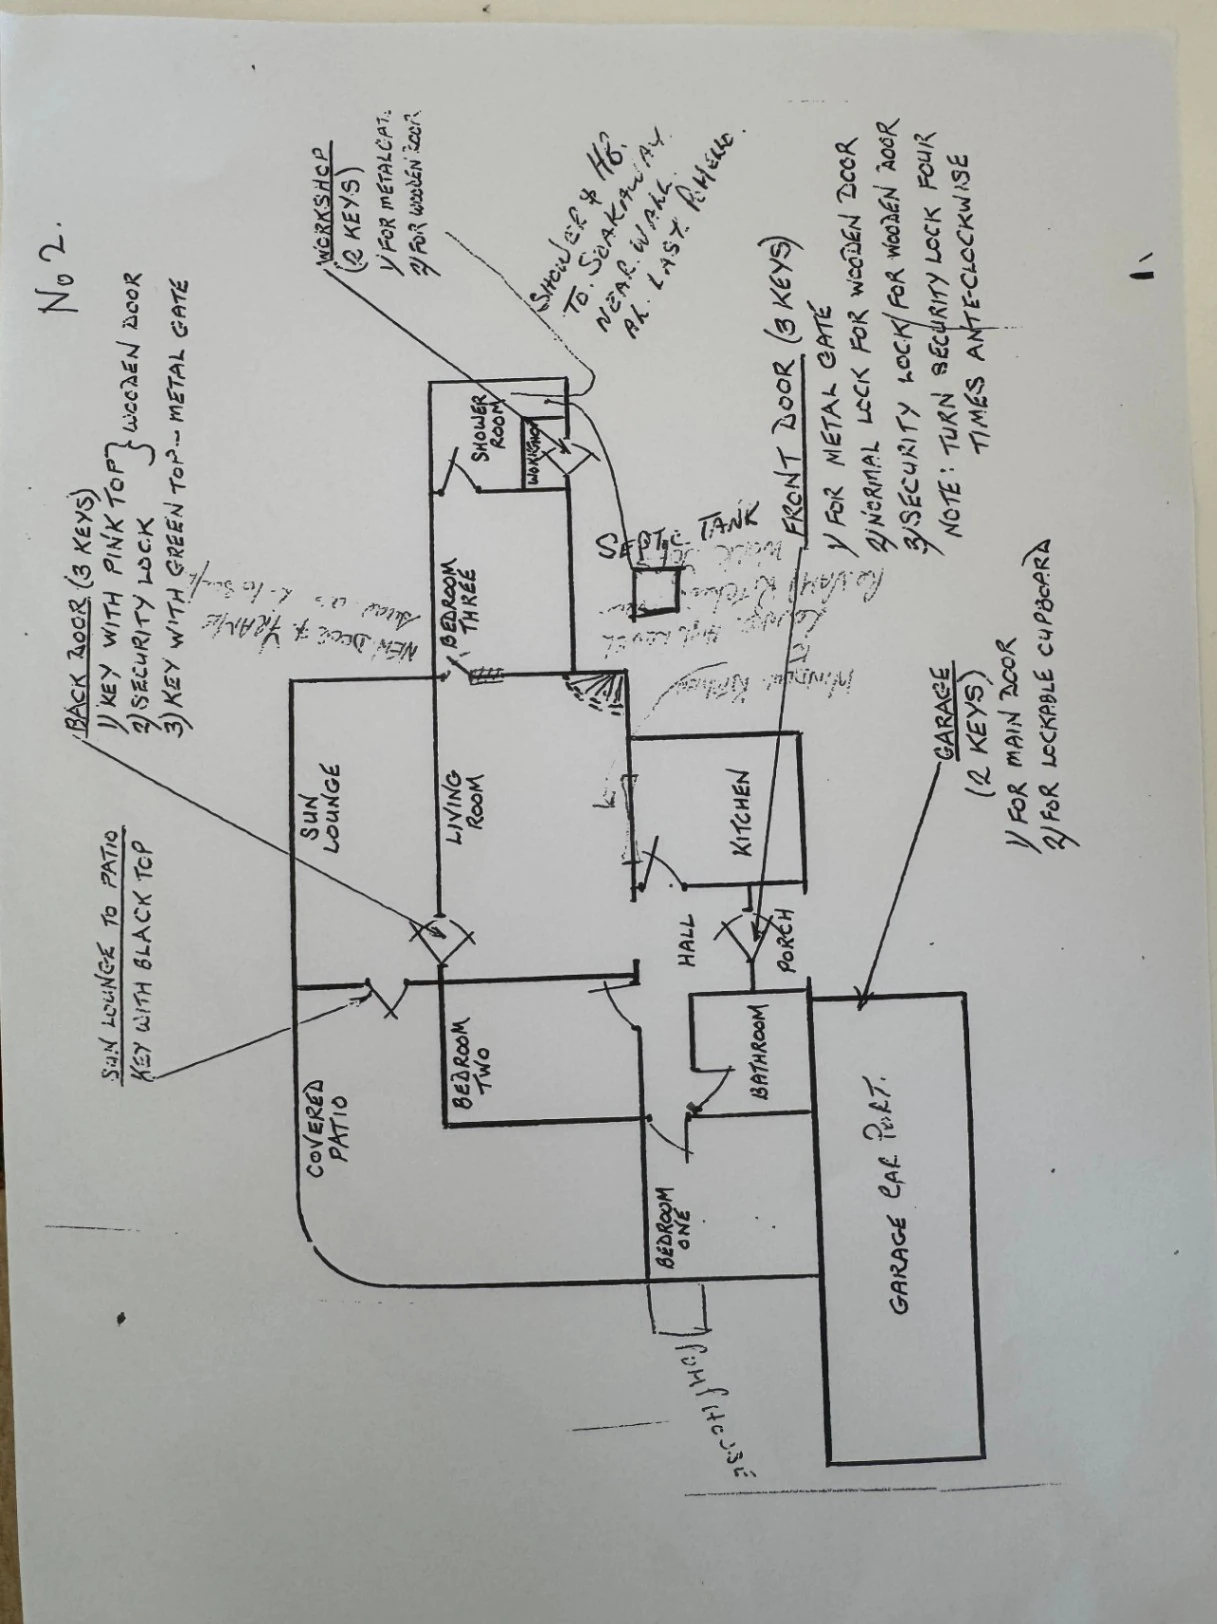 No 2.
BACK DOOR (3 KEYS)
1) KEY WITH PINK TOP } WOODEN DOOR
2) SECURITY LOCK
3) KEY WITH GREEN TOP - METAL GATE
SUN LOUNGE TO PATIO
KEY WITH BLACK TOP
WORKSHOP
(2 KEYS)
1) FOR METAL GAT.
2) FOR WOODEN DOOR
SHOWER & HB.
TO. SOAKAWAY
NEAR. WALL.
AL. LAST.
NEW DOOR & FRAME
SUN
LOUNGE
COVERED
PATIO
LIVING
ROOM
BEDROOM
THREE
SHOWER
ROOM
WORKSHOP
BEDROOM
TWO
SEPTIC TANK
KITCHEN
HALL
PORCH
BATHROOM
BEDROOM
ONE
GARAGE CAR PORT.
FRONT DOOR (3 KEYS)
1) FOR METAL GATE
2) NORMAL LOCK FOR WOODEN DOOR
3) SECURITY LOCK/FOR WOODEN DOOR
NOTE: TURN SECURITY LOCK FOUR
TIMES ANTE-CLOCKWISE
GARAGE
(2 KEYS)
1) FOR MAIN DOOR
2) FOR LOCKABLE CUPBOARD
1.